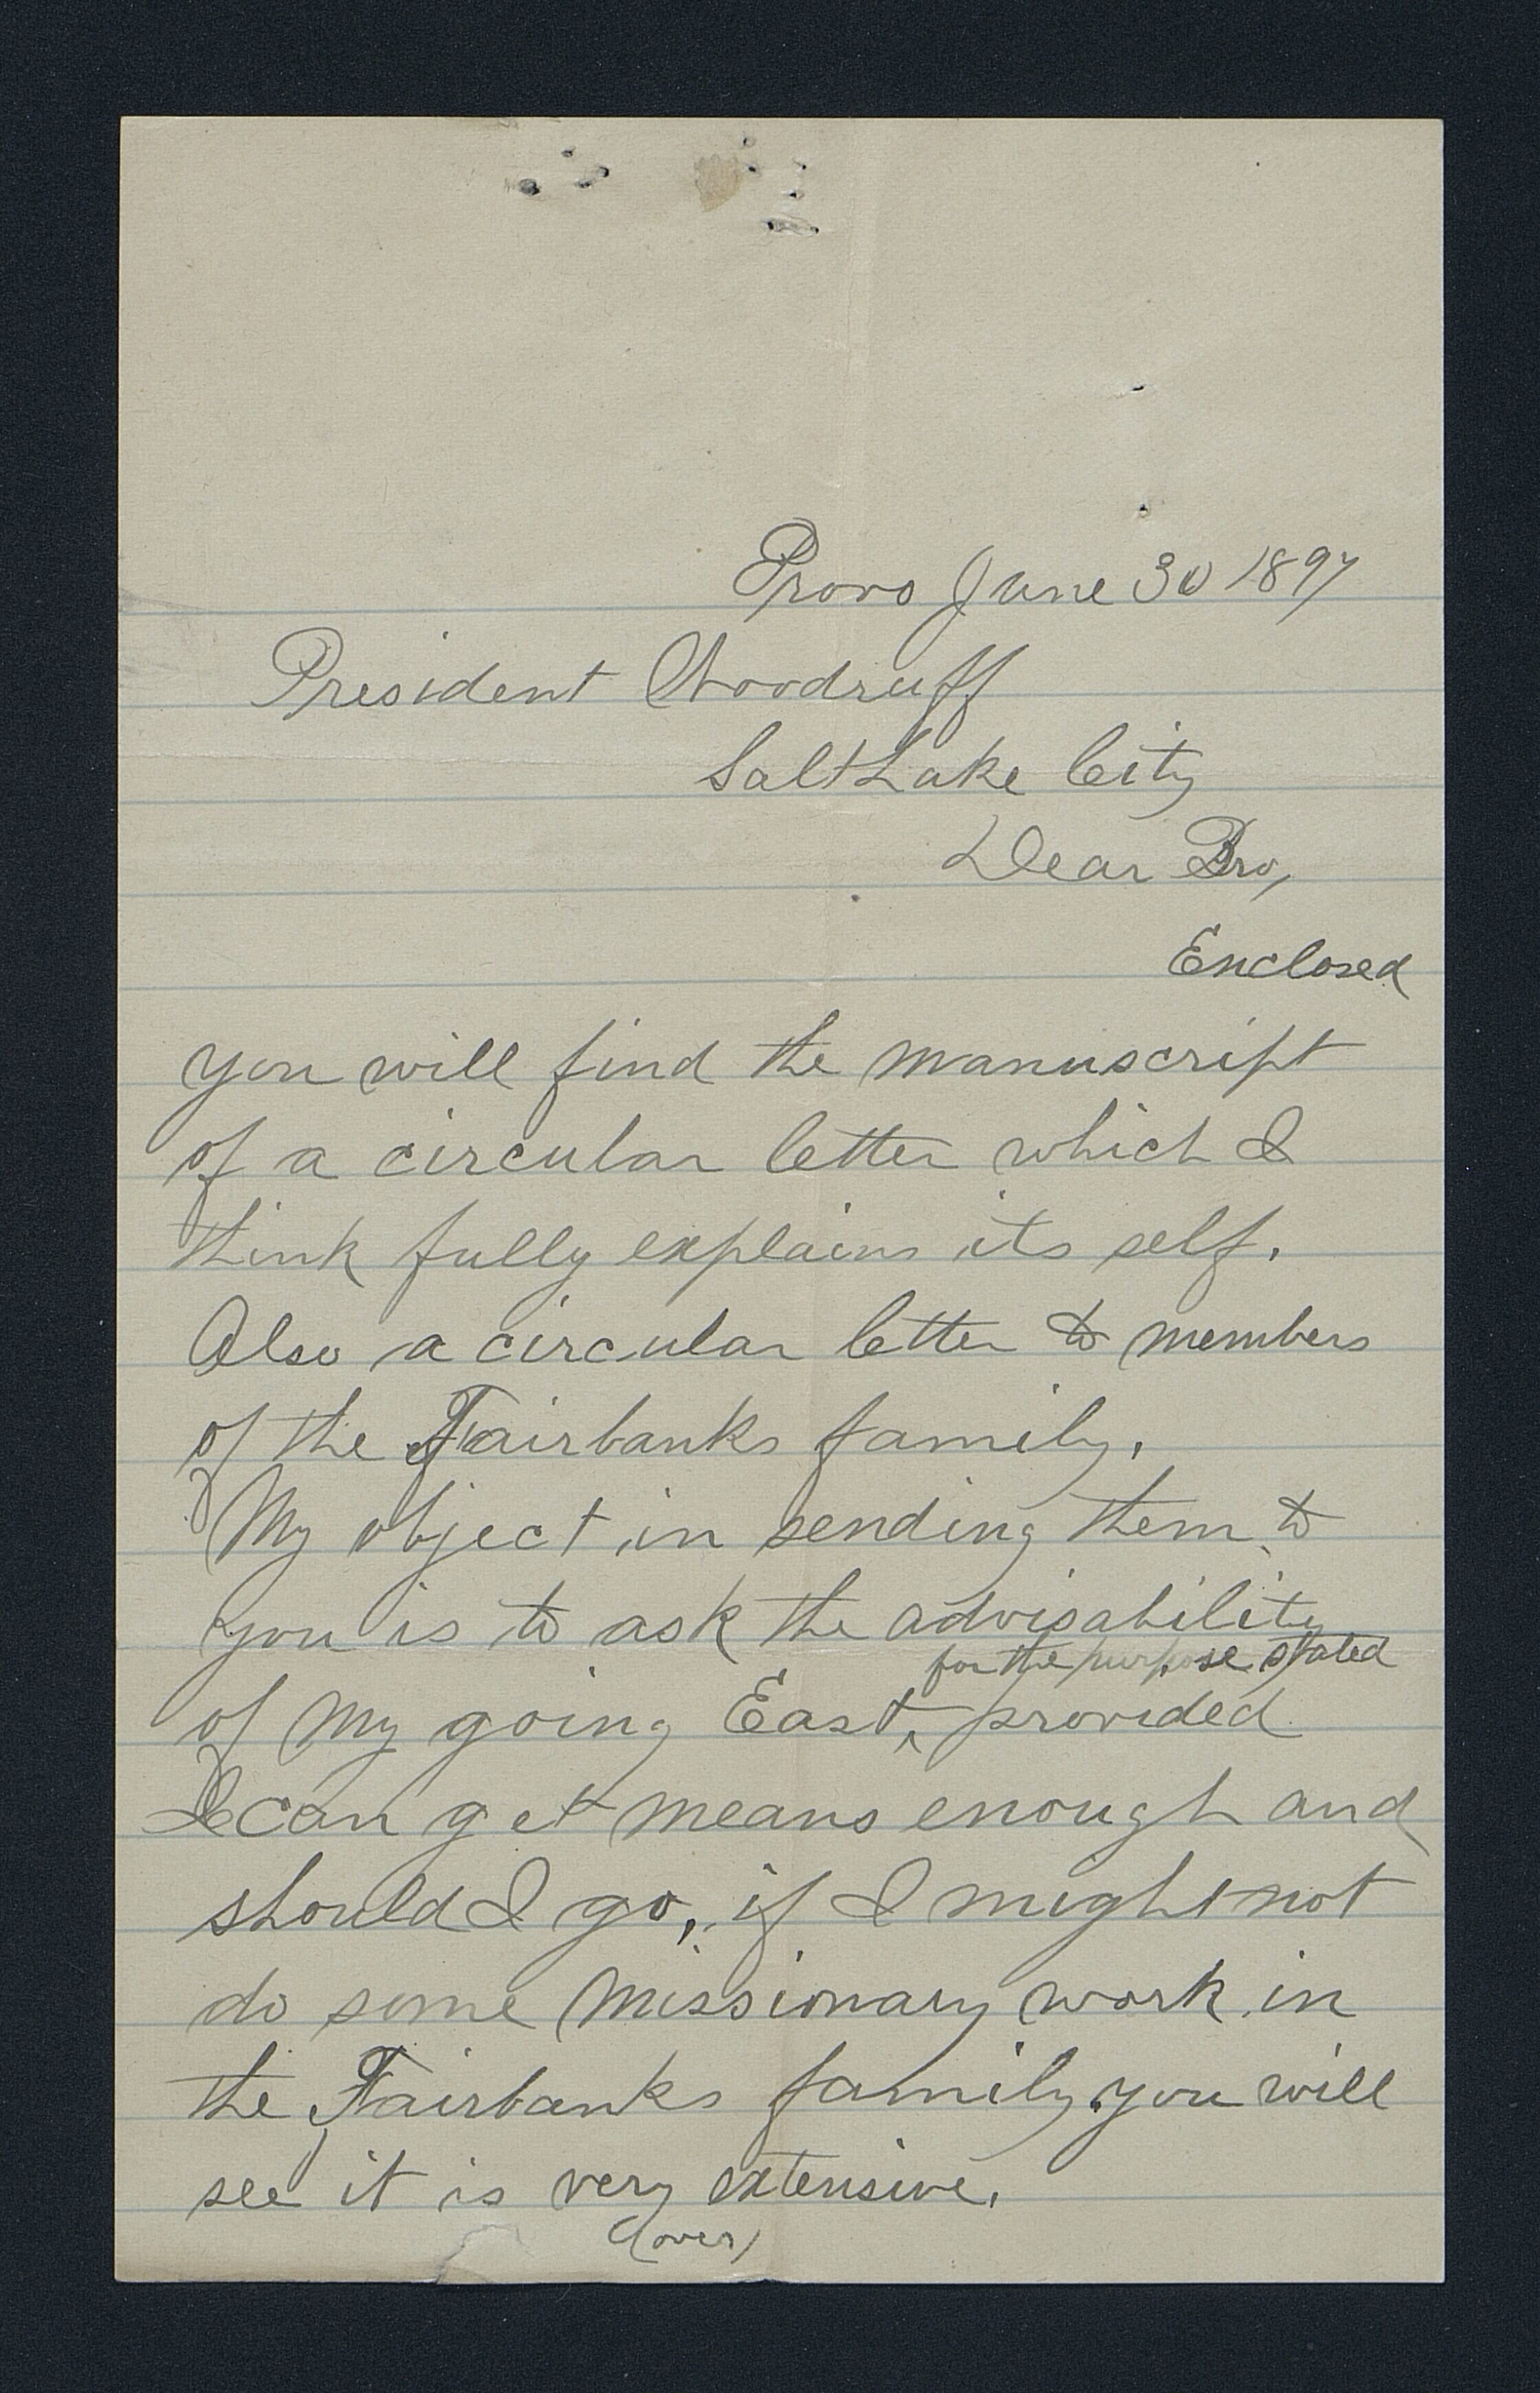 Provo June 30 1897
President Woodruff
Salt Lake City
Dear Bro,
Enclosed
you will find the manuscript
of a circular letter which I
think fully explains its self.
Also a circular letter to members
of the Fairbanks family.
My object in sending them to
you is to ask the advisability
for the purpose stated
of my going East, ^ provided
I can get means enough and
should I go, if I might not
do some missionary work in
the Fairbanks family, you will
see it is very extensive.
(over)